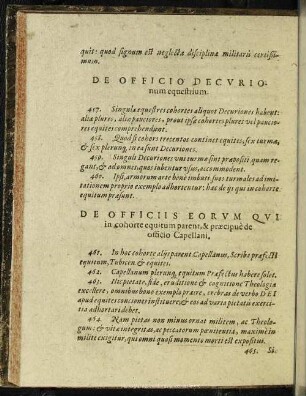 quit: quod signum est neglectæ disciplinæ militaris certissi-
mum.
DE OFFICIO DECVRIO-
num equestrium.
457. Singulæ equestres cohortes aliquot Decuriones habent:
aliæ plures, aliæ pauciores, prout ipsæ cohortes plures vel paucio-
res equites comprehendunt.
458. Quod si cohors trecentos continet equites, sex turmæ,
& sex plerunq; in ea sunt Decuriones.
459. Singuli Decuriones vni turmæ sunt præpositi quam re-
gant, & ad omnes, quos iubentur vsus, accommodent.
460. Ipsi, armorum arte bene imbuti, suas turmales ad imi-
tationem proprio exemplo adhortentur: hac de ijs qui in cohorte
equitum præsunt.
DE OFFICIIS EORVM QVI
in cohorte equitum parent, & præcipuè de
officio Capellani.
461. In hac cohorte alijs parent Capellanus, Scriba præfecti
equitum, Tubicen & equites.
462. Capellanum plerunq; equitum Præfectus habere solet.
463. Hic pietate, fide, eruditione & cognitione Theologiæ
excellere, omnibus bono exemplo præire, crebras de verbo DEI
apud equites conciones instituere, & eos ad varia pietatis exerci-
tia adhortari debet.
464. Nam pietas non minus ornat militem, ac Theolo-
gum: & vitæ integritas, ac peccatorum pœnitentia, maxime in
milite exigitur, qui omni quasi momento morti est expositus.
465. Si